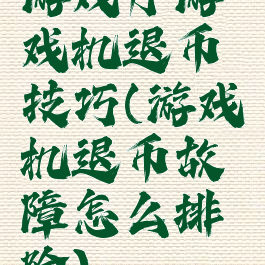 游戏厅游
戏机退币
技巧(游戏
机退币故
障怎么排
除)